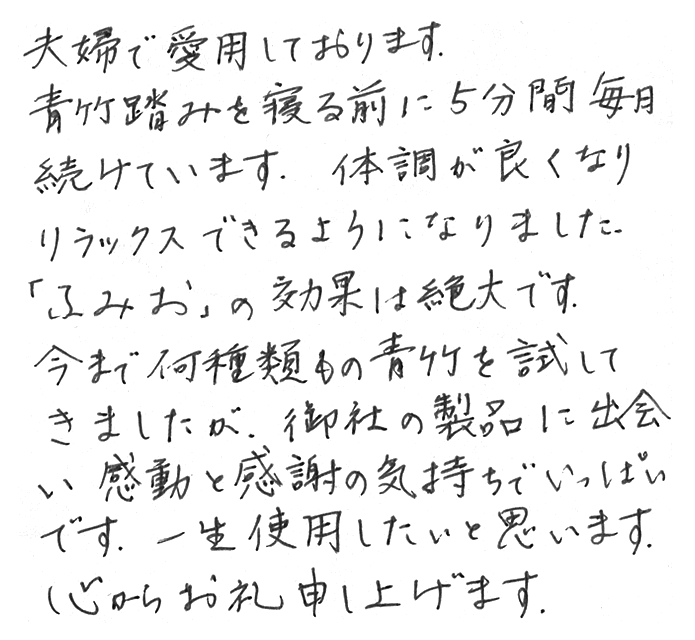 夫婦で愛用しております.
青竹踏みを寝る前に5分間毎日
続けています. 体調が良くなり
リラックスできるようになりました.
「ふみお」の効果は絶大です.
今まで何種類もの青竹を試して
きましたが. 御社の製品に出会
い感動と感謝の気持ちでいっぱい
です. 一生使用したいと思います.
心からお礼申し上げます.